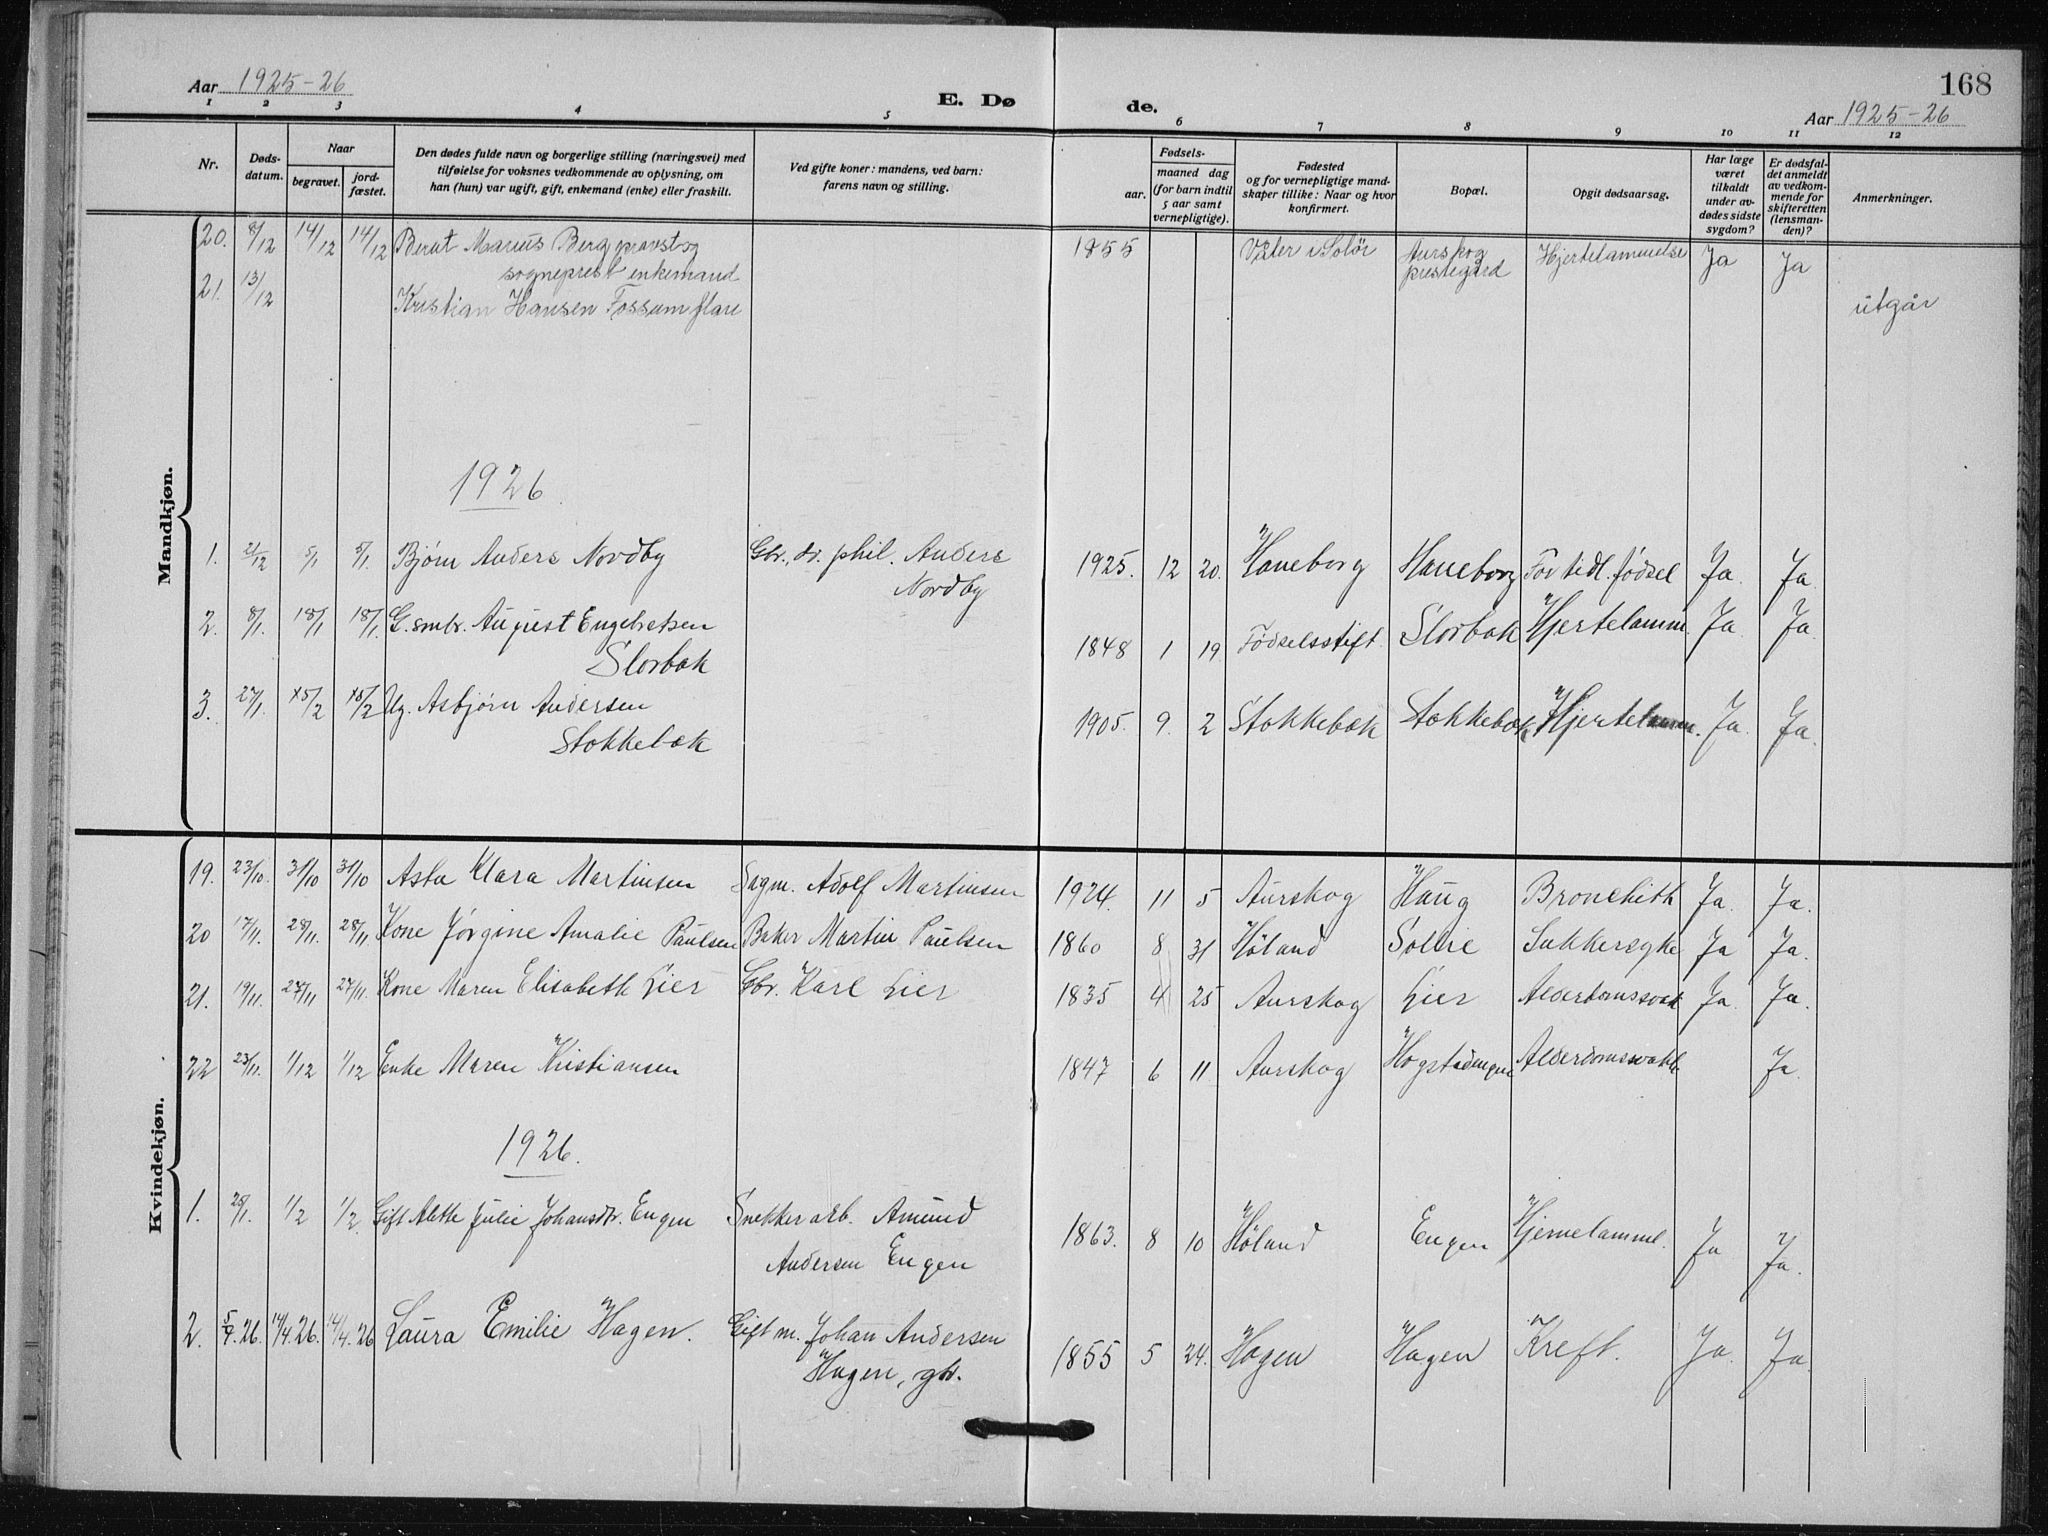 Aar 1925-26
E. Dø
de.
168
Aar 1925-26
1 2 3 4 5 6 7 8 9 10 11 12
Nr.
Døds-
datum.
Naar
begravet.
jord-
fæstet.
Den dødes fulde navn og borgerlige stilling (næringsvei) med
tilføielse for voksnes vedkommende av oplysning, om
han (hun) var ugift, gift, enkemand (enke) eller fraskilt.
Ved gifte koner: mandens, ved barn:
farens navn og stilling.
Fødsels-
aar.
maaned dag
(for barn indtil
5 aar samt
vernepligtige).
Fødested
og for vernepligtige mand-
skaper tillike: Naar og hvor
konfirmert.
Bopæl.
Opgit dødsaarsag.
Har læge
været
tilkaldt
under av-
dødes sidste
sygdom?
Er dødsfal-
det anmeldt
av vedkom-
mende for
skifteretten
(lensman-
den)?
Anmerkninger.
Mandkjøn.
20. 8/12 14/12 14/12 Bernt Marius Berg provst og
sogneprest enkemand
1855 Våler i Solør Aurskog
prestegård Hjertelammelse Ja Ja
21. 13/12 Kristian Hansen Fossum flare utgår
1926
1. 21/12 5/1 5/1. Bjørn Anders Nordby Gbr., dr. phil. Anders
Nordby
1925. 12 20. Haneborg Haneborg For tidl. fødsel Ja. Ja.
2. 8/1. 18/1 18/1. G. smbr. August Engebretsen
Slorbak
1848 1 19. Fødselsstift. Slorbak Hjertelamm. Ja Ja.
3. 27/1. 5/2 5/2 Ug. Asbjørn Andersen
Stokkebæk
1905. 9. 2 Stokkebæk Stokkebæk Hjertelamm. Ja. Ja.
Kvindekjøn.
19. 23/10. 31/10 31/10 Asta Klara Martinsen Sagm. Adolf Martinsen 1924. 11 5 Aurskog Haug Bronchith Ja. Ja.
20 17/11. 28/11. 28/11 Kone Jørgine Amalie Paulsen Baker Martin Paulsen 1860 8 31 Høland Sollie Sukkersyke Ja Ja.
21. 19/11. 27/11 27/11. Kone Maren Elisabeth Lier Gbr. Karl Lier 1835 4 25 Aurskog Lier Alderdomssvak Ja. Ja.
22 23/11. 1/12 1/12 Enke Maren Kristiansen 1847 6 11 Aurskog Alderdomssvakh. Ja.
1926.
1. 25/1. 1/2 1/2. Gift Alette Julie Johansdtr. Engen Snekkerarb. Amund
Andersen Engen
1863. 8 10 Høland Engen Hjernelamml. Ja Ja.
2. 5/4. 26. 14/4. 26. 14/4. 26 Laura Emilie Hagen. Gift m. Johan Andersen
Hagen, gbr.
1855 5 24. Hagen Hagen Kreft. Ja. Ja.